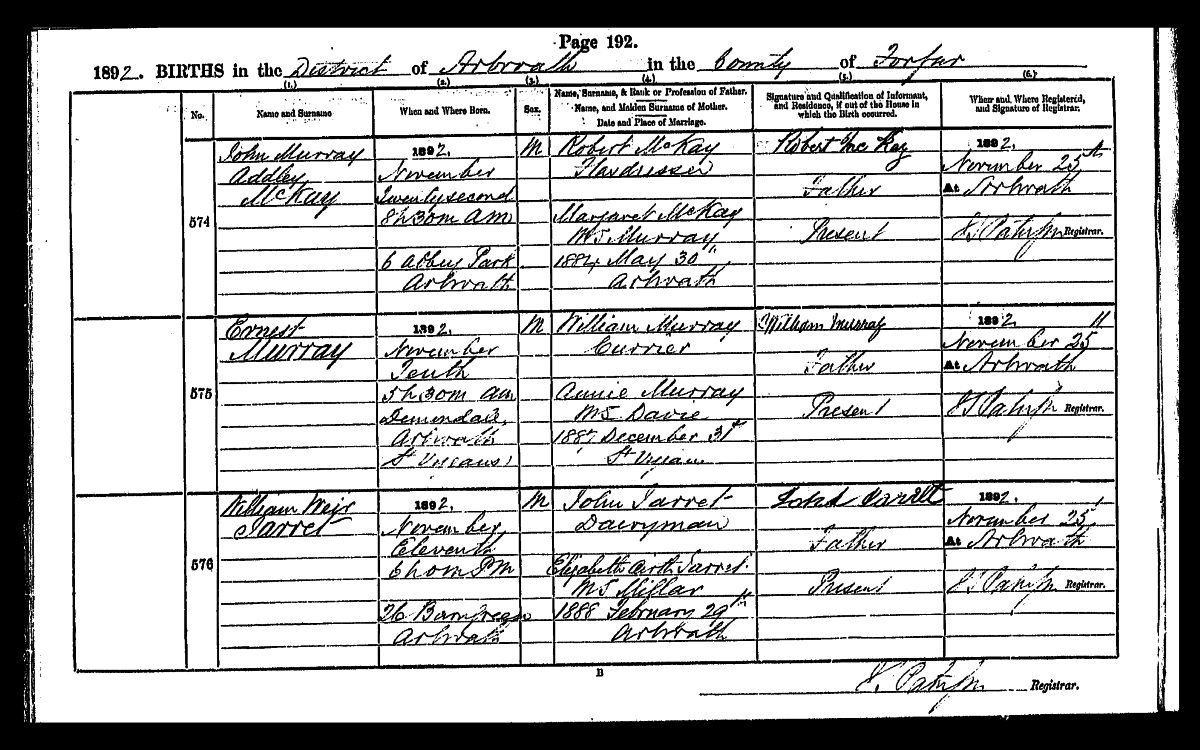 Page 192.
1892. BIRTHS in the District of Arbroath in the County of Forfar
(1.) (2.) (3.) (4.) (5.) (6.)
No.
Name and Surname
When and Where Born.
Sex.
Name, Surname, & Rank or Profession of Father.
Name, and Maiden Surname of Mother.
Date and Place of Marriage.
Signature and Qualification of Informant,
and Residence, if out of the House in
which the Birth occurred.
When and Where Registered,
and Signature of Registrar.
574
John Murray
Addley
McKay
1892.
November
Twenty second
8h 30m AM
6 Abbey Park
Arbroath
M
Robert McKay
Hairdresser
Margaret McKay
MS Murray
1884, May 30"
Arbroath
Robert McKay
Father
Present
1892.
November 25th
At Arbroath
Registrar.
575
Ernest
Murray
1892.
November
Tenth
5h 30m AM
Arbroath
St Vigeans
M
William Murray
Currier
Annie Murray
MS Davie
1887, December 31st
St Vigeans
William Murray
Father
Present
1892.
November 25"
At Arbroath
Registrar.
576
William Weir
Jarret
1892.
November
Eleventh
6h 0m PM
26
Arbroath
M
John Jarret
Dairyman
Elizabeth Jarret
MS Millar
1888 February 29th
Arbroath
Father
Present
1892.
November 25
At Arbroath
Registrar.
B
Registrar.